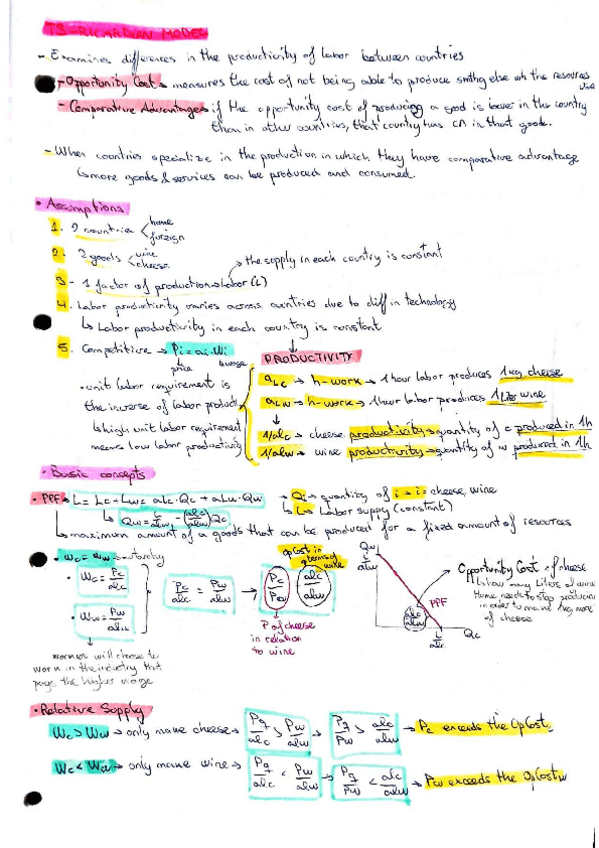 T3-RICARDIAN MODEL
- Examines differences in the productivity of labor between countries
- Opportunity Cost → measures the cost of not being able to produce smthg else with the resources used
- Comparative Advantage → if the opportunity cost of producing a good is lower in the country
than in other countries, that country has CA in that good.
- When countries specialize in the production in which they have comparative advantage
↳ more goods & services can be produced and consumed.
• Assumptions
1. 2 countries < home
foreign
2. 2 goods < wine
cheese
the supply in each country is constant
3- 1 factor of production → Labor (L)
4. Labor productivity varies across countries due to diff in technology
↳ Labor productivity in each country is constant
5. Competitive → Pi = ai · Wi
price
wage
PRODUCTIVITY
• unit labor requirement is
the inverse of labor product.
↳ high unit labor requirement
means low labor productivity
aLC → h-work → 1 hour labor produces 1kg cheese
aLW → h-work → 1 hour labor produces 1 Liter wine
1/aLC → cheese productivity → quantity of c produced in 1h
1/aLW → wine productivity → quantity of w produced in 1h
• Basic concepts
• PPF → L = Lc + Lw = aLC · Qc + aLW · Qw
→ Qi → quantity of i → i = cheese, wine
→ L → Labor supply (constant)
Qw = L/aLW - (aLC/aLW) Qc
↳ maximum amount of a goods that can be produced for a fixed amount of resources
• Wc = Ww →
• Wc = Pc/aLC
• Ww = Pw/aLW
Pc/aLC = Pw/aLW → Pc/Pw = aLC/aLW
OpCost in terms of wine
P of cheese
in relation
to wine
workers will choose to
work in the industry that
pays the higher wage
Qw
L/aLW
PPF
aLC/aLW
L/aLC
Qc
Opportunity Cost of cheese
↳ how many Liters of wine
Home needs to stop producing
in order to make 1kg more
of cheese
• Relative Supply
Wc > Ww → only make cheese → Pc/aLC > Pw/aLW → Pc/Pw > aLC/aLW → Pc exceeds the OpCost c
Wc < Ww → only make wine → Pc/aLC < Pw/aLW → Pc/Pw < aLC/aLW → Pw exceeds the OpCost w